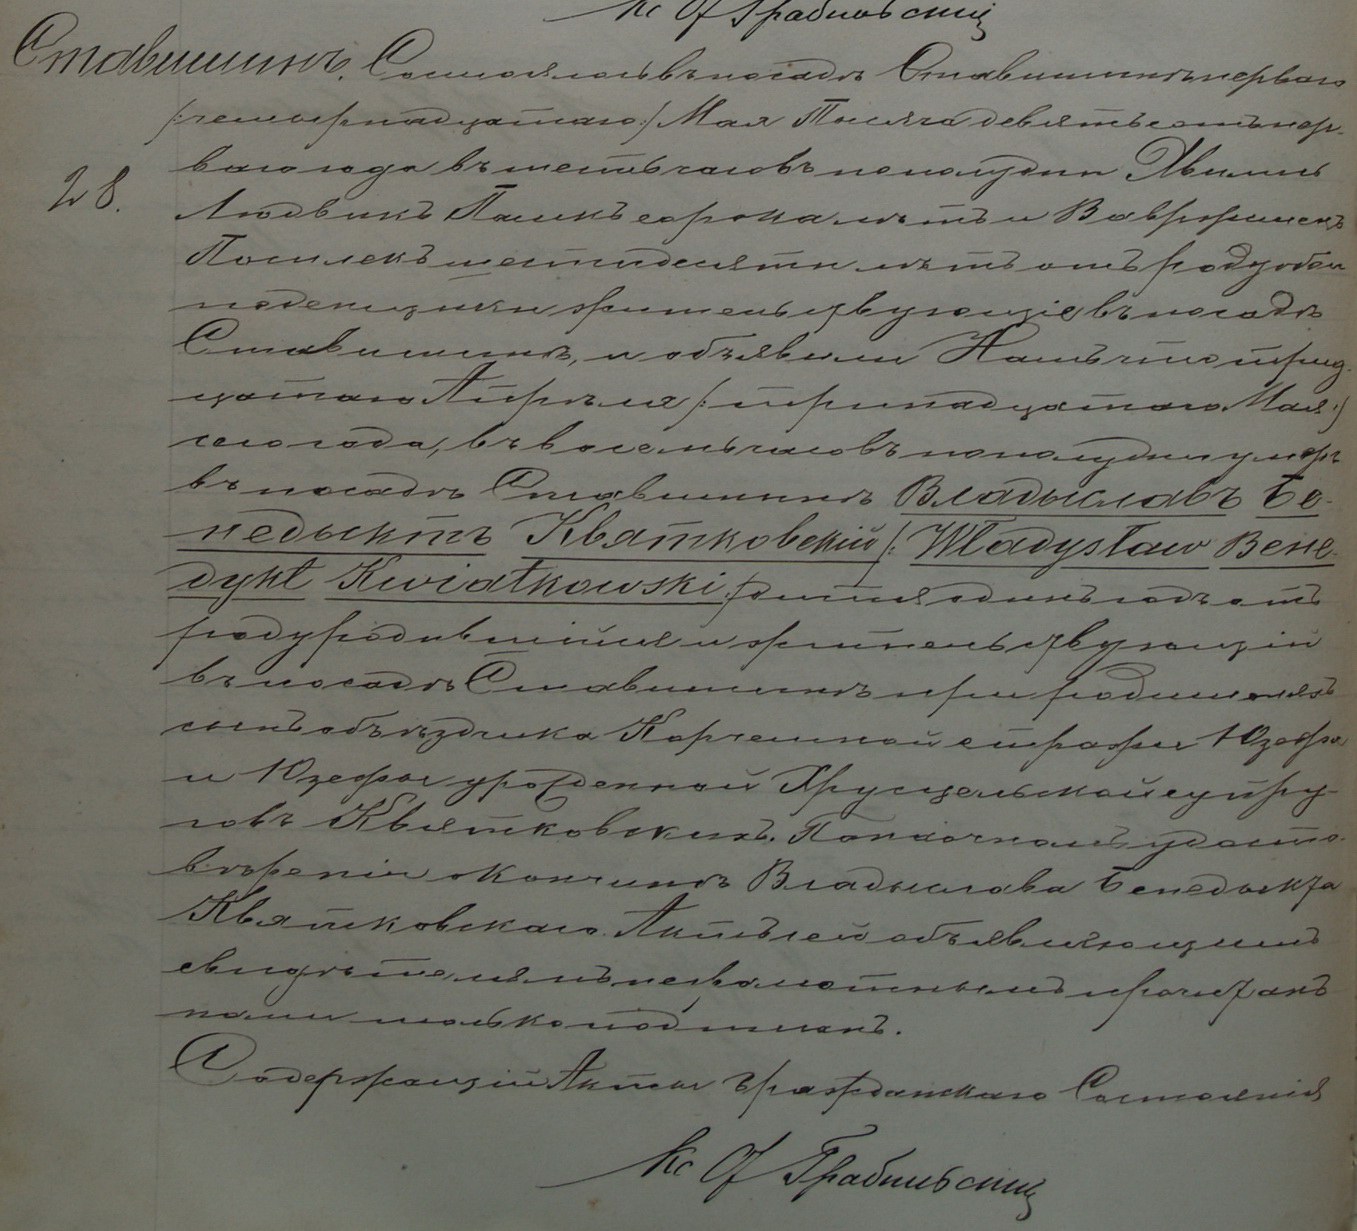 Кс Грабовскій
Ставишинъ. Состоялось въ посадѣ Ставишинѣ перваго
/:четырнадцатаго:/ Мая Тысяча девятьсотъ пер-
ваго года въ шесть часовъ пополудни Явились
Людвикъ Палюкъ сорока лѣтъ и Вавржинецъ
28.
шестидесяти лѣтъ отъ роду оба
поденщики жительствующіе въ посадѣ
Ставишинѣ, и объявили Намъ что трид-
цатаго Апрѣля /:тринадцатаго Мая:/
сего года, въ восемь часовъ пополудни умеръ
въ посадѣ Ставишинѣ Владыславъ Бе-
недыктъ Квятковскій /: Władysław Bene-
dykt Kwiatkowski:/ дитя одинъ годъ отъ
роду родившійся и жительствующій
въ посадѣ Ставишинѣ при родителяхъ
сынъ объѣздчика Корчемной стражи Юзефа
и Юзефы урожденной Хрусцельской супру-
говъ Квятковскихъ. По наочномъ удосто-
вѣреніи о кончинѣ Владыслава Бенедыкта
Квятковскаго Актъ сей объявляющимъ
свидѣтелямъ неграмотнымъ прочитанъ
нами только подписанъ.
Содержащій Акты Гражданскаго Состоянія
Кс Грабовскій